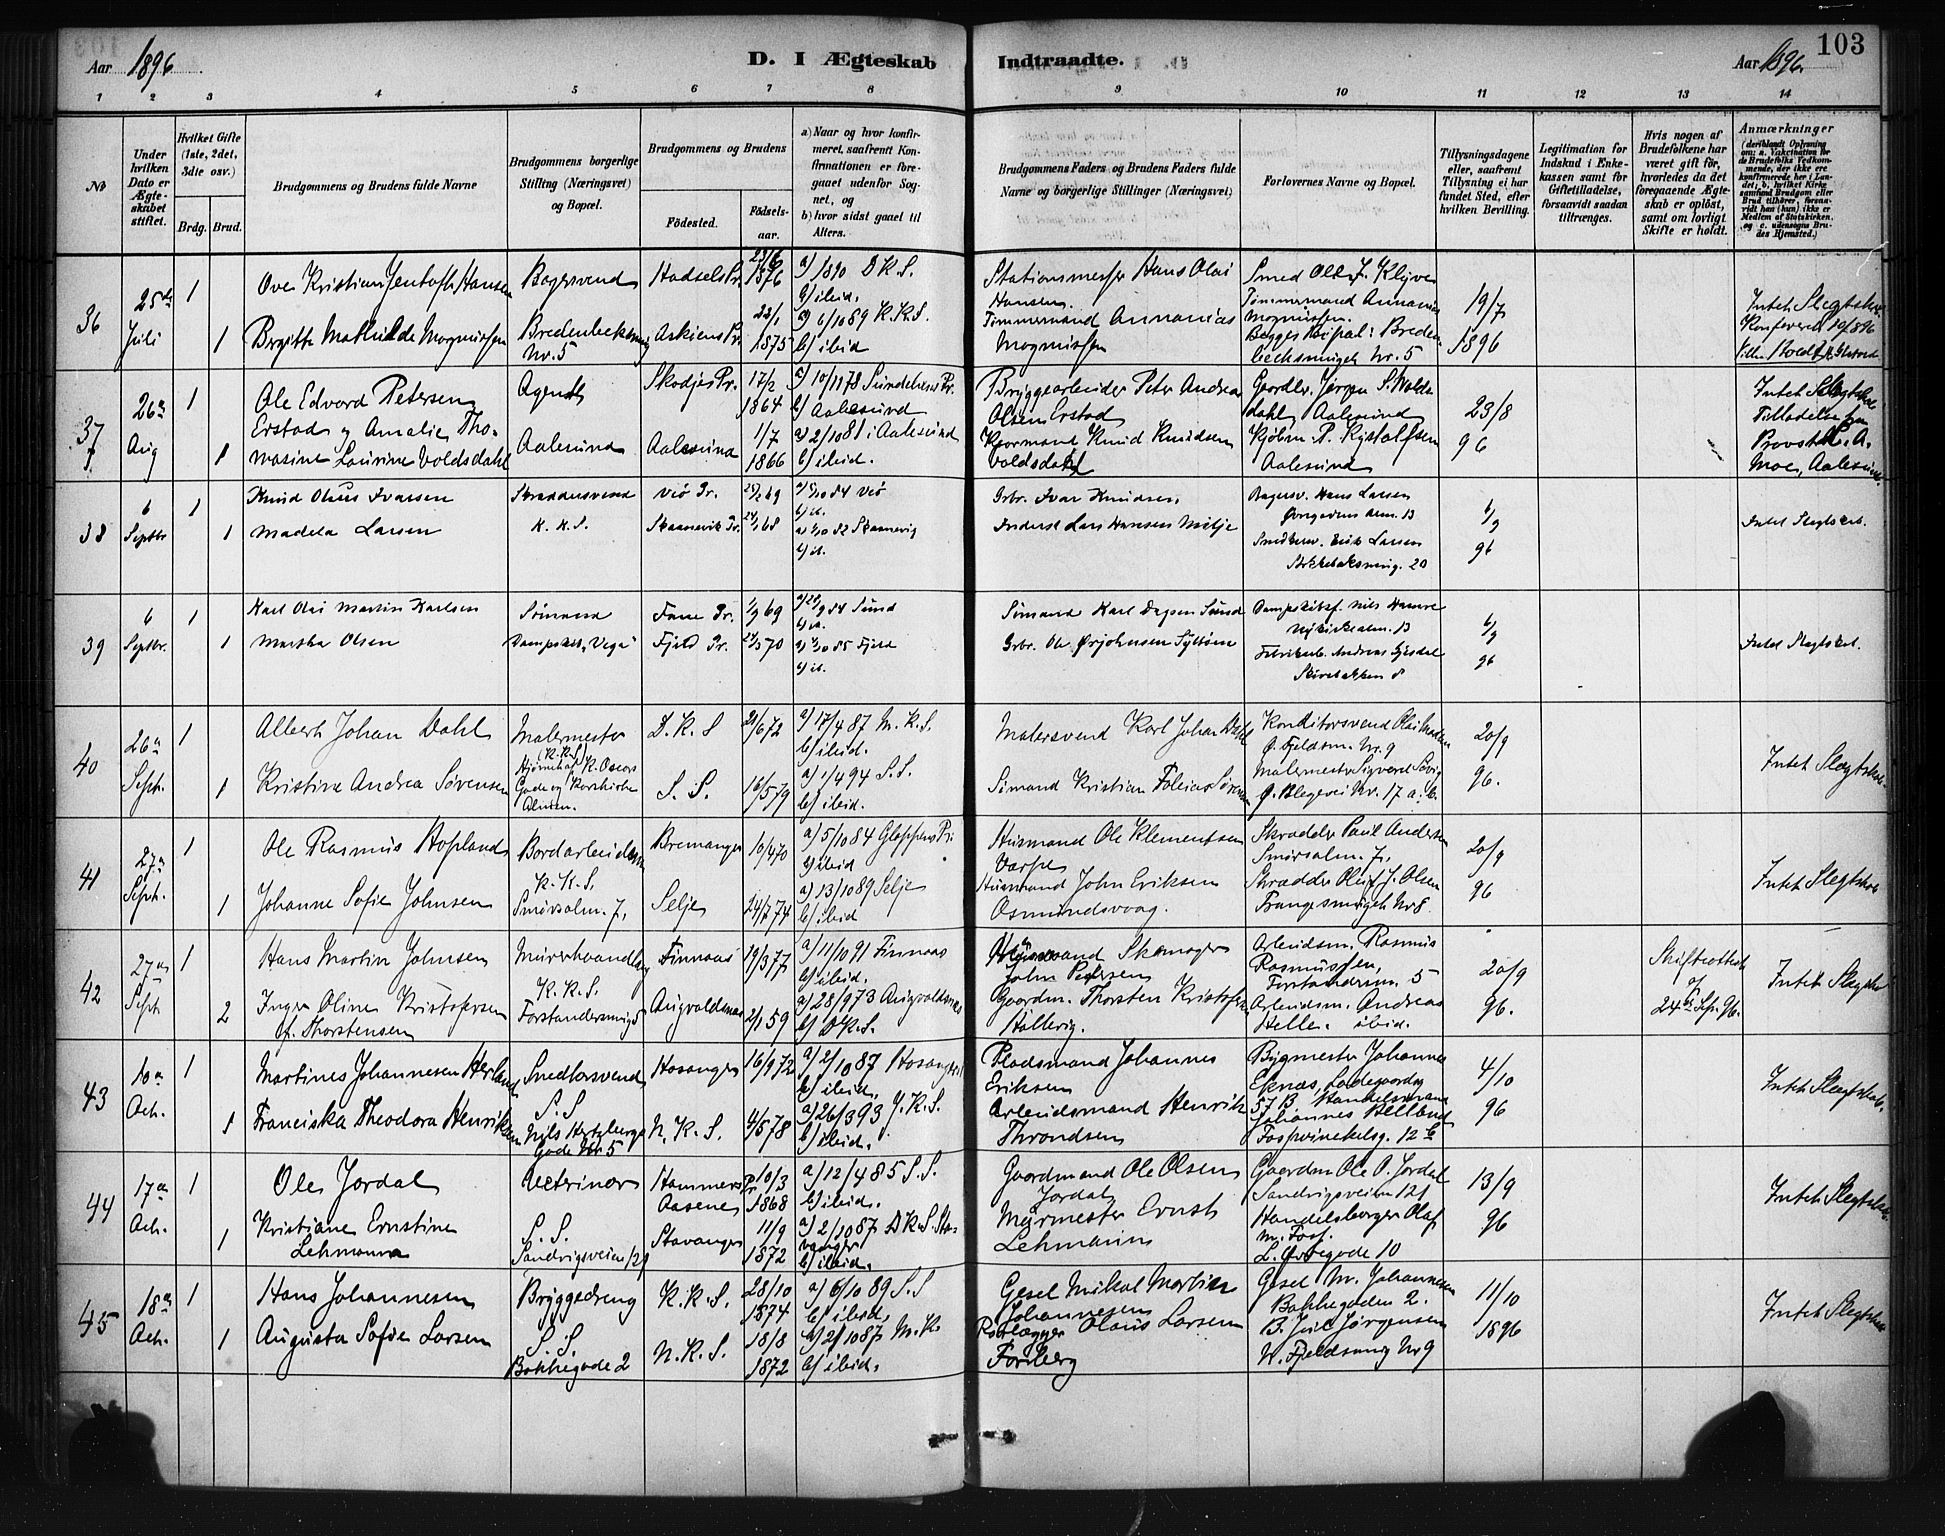 103
Aar 1896
D. I Ægteskab
Indtraadte.
Aar 1896.
1 2 3 4 5 6 7 8 9 10 11 12 13 14
No
Under hvilken Dato er Ægteskabet stiftet.
Hvilket Gifte (1ste, 2det, 3die osv.)
Brdg. Brud.
Brudgommens og Brudens fulde Navne
Brudgommens borgerlige Stilling (Næringsvei) og Bopæl.
Brudgommens og Brudens
Födested.
Födselsaar.
a) Naar og hvor konfirmeret, saafremt Konfirmationen er foregaaet udenfor Sognet, og
b) hvor sidst gaaet til Alters.
Brudgommens Faders og Brudens Faders fulde Navne og borgerlige Stillinger (Næringsvei)
Forlovernes Navne og Bopæl.
Tillysningsdagene eller, saafremt Tillysning ei har fundet Sted, efter hvilken Bevilling.
Legitimation for Indskud i Enkekassen samt for Giftetilladelse, forsaavidt saadan tiltrænges.
Hvis nogen af Brudefolkene har været gift för, hvorledes da det foregaaende Ægteskab er oplöst, samt om lovligt Skifte er holdt.
Anmærkninger
36
25de Juli
1
Ove Kristian Jentoft Hansen
Bagersvend
Hadsels Pr.
1876
a) 1890 D.K.S.
b) ibid.
Stationsmester Hans Olai Hansen
Smed Ole J. Klyve
19/7 1896
1
Birgitte Mathilde Magnussen
Bredenbecksmug Nr. 5
Askøens Pr.
22/1 1875
a) 6/10 89 K.K.S.
b) ibid
Tømmermand Annanias Magnussen
Tømmermand Annanias Magnussen.
Begges Bopæl: Bredenbecksmuget Nr. 5
Intet Slegtskab.
37
26de Aug
1
Ole Edvard Petersen Erstad og Amalie Thomasine Laurine Voldsdahl
Agent
Aalesund
Skodje Pr.
17/2 1864
a) 10/11 78 Sundelvens Pr.
b) Aalesund
Bryggearbeider Peter Andreas Olsen Erstad
Gaardbr. Jørgen S. Voldsdahl, Aalesund
23/8 96
1
Aalesund
1/7 1866
a) 2/10 81 i Aalesund
b) ibid.
Formand Knud Knudsen Voldsdahl
Aalesund
Intet Slegtskab
Tilladelse fra Provst A. Moe, Aalesund.
38
6 Septbr
1
Knud Olaus Ivarsen
Skræddersvend
K.K.S.
Veø Pr.
a) 5/10 84 Veø
b) id.
Grbr. Ivar Knudsen,
Bagersv. Hans Larsen
Øvregadens alm. 13
6/9 96
1
Madela Larsen
Skaanevik Pr.
24/1 68
a) 1/10 82 Skaanevig
b) id.
Inderst Lars Hansen Milje
Smedsv. Erik Larsen
Intet Slegtskab.
39
6 Septbr.
1
Karl Olai Martin Karlsen
Sømand
Dampskib "Vega"
Fane Pr.
1/9 69
a) 28/9 84 Sund
b) id.
Sømand Karl Dagsen Sund
Dampskibsf. Nils Hamre
Nykirkealm. 13
6/9 96
1
Martha Olsen
Fjeld Pr.
24/3 70
a) 4/10 85 Fjeld
b) id.
Gbr. Ole Ørjohnsen Syltøen
Fabrikarb. Andreas Gjesdal
Skivebakken 8
Intet Slegtskab.
40
26de Sept.
1
Albert Johan Dahl
Malermester (K.K.S.)
Hjørnet af K. Oscars Gade og Korskirke Almen.
D.K.S
21/6 72
a) 17/4 87 M.K.S.
b) ibid.
Malersvend Karl Johan Dahl
Konditorsvend Olai Madsen
Ø. Fjeldsm. Nr. 9
20/9 96.
1
Kristine Andrea Sørensen
S.S.
16/5 79
a) 1/4 94 S.S.
b) ibid.
Sømand Kristian Tobias Sørensen
Malermester Sigvard Sævig
Ø. Blegevei Nr. 17 a: b.
Intet Slegtskab.
41
27de Sept.
1
Ole Rasmus Hopland
Bordarbeider
K.K.S.
Smørsalm. 7,
Bremanger
10/4 70
a) 5/10 84 Gloppens Pr.
b) ibid
Husmand Ole Klementsen Varpe
Skrædder Paul Andersen
Smørsalm. 7,
20/9 96
1
Johanne Sofie Johnsen
Selje
24/7 74
a) 13/10 89 Selje
b) ibid
Husmand John Eriksen Osmundsvaag.
Skrædder Oluf J. Olsen
Frangesmuget Nr 8.
Intet Slegtskab
42
27de Sept
1
Hans Martin Johnsen
Murerhaandlg
K.K.S.
Forstandersmug 5
Finnaas
19/3 77
a) 11/10 91 Finnaas
b) ibid.
Husmand Skomager John Petersen
Arbeidsm. Rasmus Rasmussen,
Forstandersm. 5
20/9 96.
2
Inger Oline Kristofersen
f. Thorstensen
Augvaldsnæs
2/1 59
a) 28/9 73 Augvaldsnæs
b) D.K.S.
Gaardm. Thorsten Kristofersen Hallevig.
Arbeidsm. Andreas Helle. ibid.
Skifteattest af 24de Sp. 96.
Intet Slegtskab
43
10de Oct.
1
Martines Johannesen Herland
Snedkersvend
S.S
Nils Hertzbergs Gade Nr. 5
Hosanger
16/9 72
a) 2/10 87 Hosanger
b) ibid.
Pladsmand Johannes Eriksen
Bygmester Johannes Eknæs, Ladegaardsg 57 B
4/10 96
1
Franciska Theodora Henriksen
N.K.S.
4/5 78
a) 26/3 93 J.K.S.
b) ibid.
Arbeidsmand Henrik Throndsen
Handelsmand Johannes Helland
Fosswinckelsg. 12 b
Intet Slegtskab.
44
17de Oct.
1
Ole Jordal
Veterinær
S.S.
Sandvigsveien 121
Hammers Pr. Aasene
10/3 1868
a) 12/4 85 S.S.
b) ibid.
Gaardmand Ole Olsen Jordal
Gaardm Ole O. Jordal
Sandvigsveien 121
13/9 96
1
Kristiane Ernstine Lehmann
Stavanger
11/9 1872
a) 2/10 87 D.K.S. Stavanger
b) ibid.
Murmester Ernst Lehmann
Handelsborger Olaf M. Foss.
L. Øvregade 10
Intet Slegtskab.
45
18de Oct.
1
Hans Johannesen
Bryggedreng
S.S.
Bakkegade 2
K.K.S.
28/10 1874
a) 6/10 89 S.S
b) ibid.
Gesel Mikal Martin Johannesen
Gesel M. Johannesen
Bakkegaden 2.
11/10 1896
1
Augusta Sofie Larsen
N.K.S.
18/8 1872
a) 2/10 87 M.K.
b) ibid.
Rørlægger Olaus Larsen Forberg
B. Juil Jørgensen
W. Fjeldsmug Nr 9
Intet Slegtskab